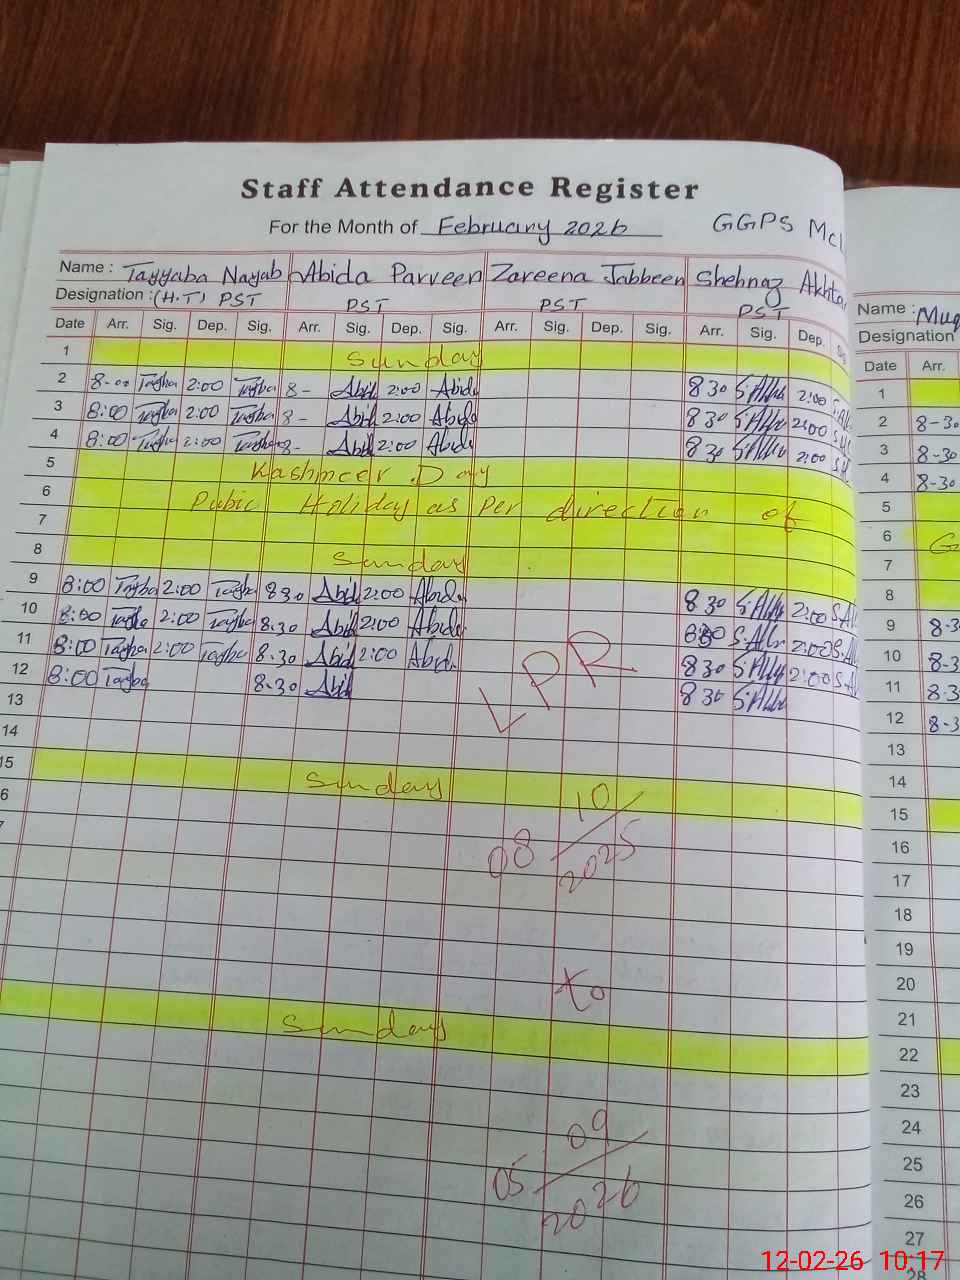 Staff Attendance Register
For the Month of February 2026 GGPS McI
Name : Tayyaba Nayab Abida Parveen Zareena Jabbeen Shehnaz Akhtar
Designation : (H.T) PST PST PST PST
Date Arr. Sig. Dep. Sig. Arr. Sig. Dep. Sig. Arr. Sig. Dep. Sig. Arr. Sig. Dep. Sig
1 Sunday
2 8-00 Tayba 2:00 Tayba 8- Abid 2:00 Abida 8 30 2:00
3 8:00 Tayba 2:00 Tayba 8- Abid 2:00 Abida 8 30 2:00
4 8:00 Tayba 2:00 Tayba 8- Abid 2:00 Abida 8 30 2:00
5 Kashmeer Day
6 Pubic Holiday as per direction of
7
8 Sunday
9 8:00 Tayba 2:00 Tayba 8 30 Abid 2:00 Abida 8 30 2:00
10 8:00 Tayba 2:00 Tayba 8.30 Abid 2:00 Abida 8 30 2:00
11 8:00 Tayba 2:00 Tayba 8.30 Abid 2:00 Abida 8 30 2:00
12 8:00 Tayba 8.30 Abid 8 30
13
LPR
14
15 Sunday
6
7
08/10/2025
to
Sunday
05/09/2026
Name : Muq
Designation
Date Arr.
1
2 8-30
3 8-30
4 8-30
5
6 G
7
8
9 8-3
10 8-3
11 8-3
12 8-3
13
14
15
16
17
18
19
20
21
22
23
24
25
26
27
28
12-02-26 10:17